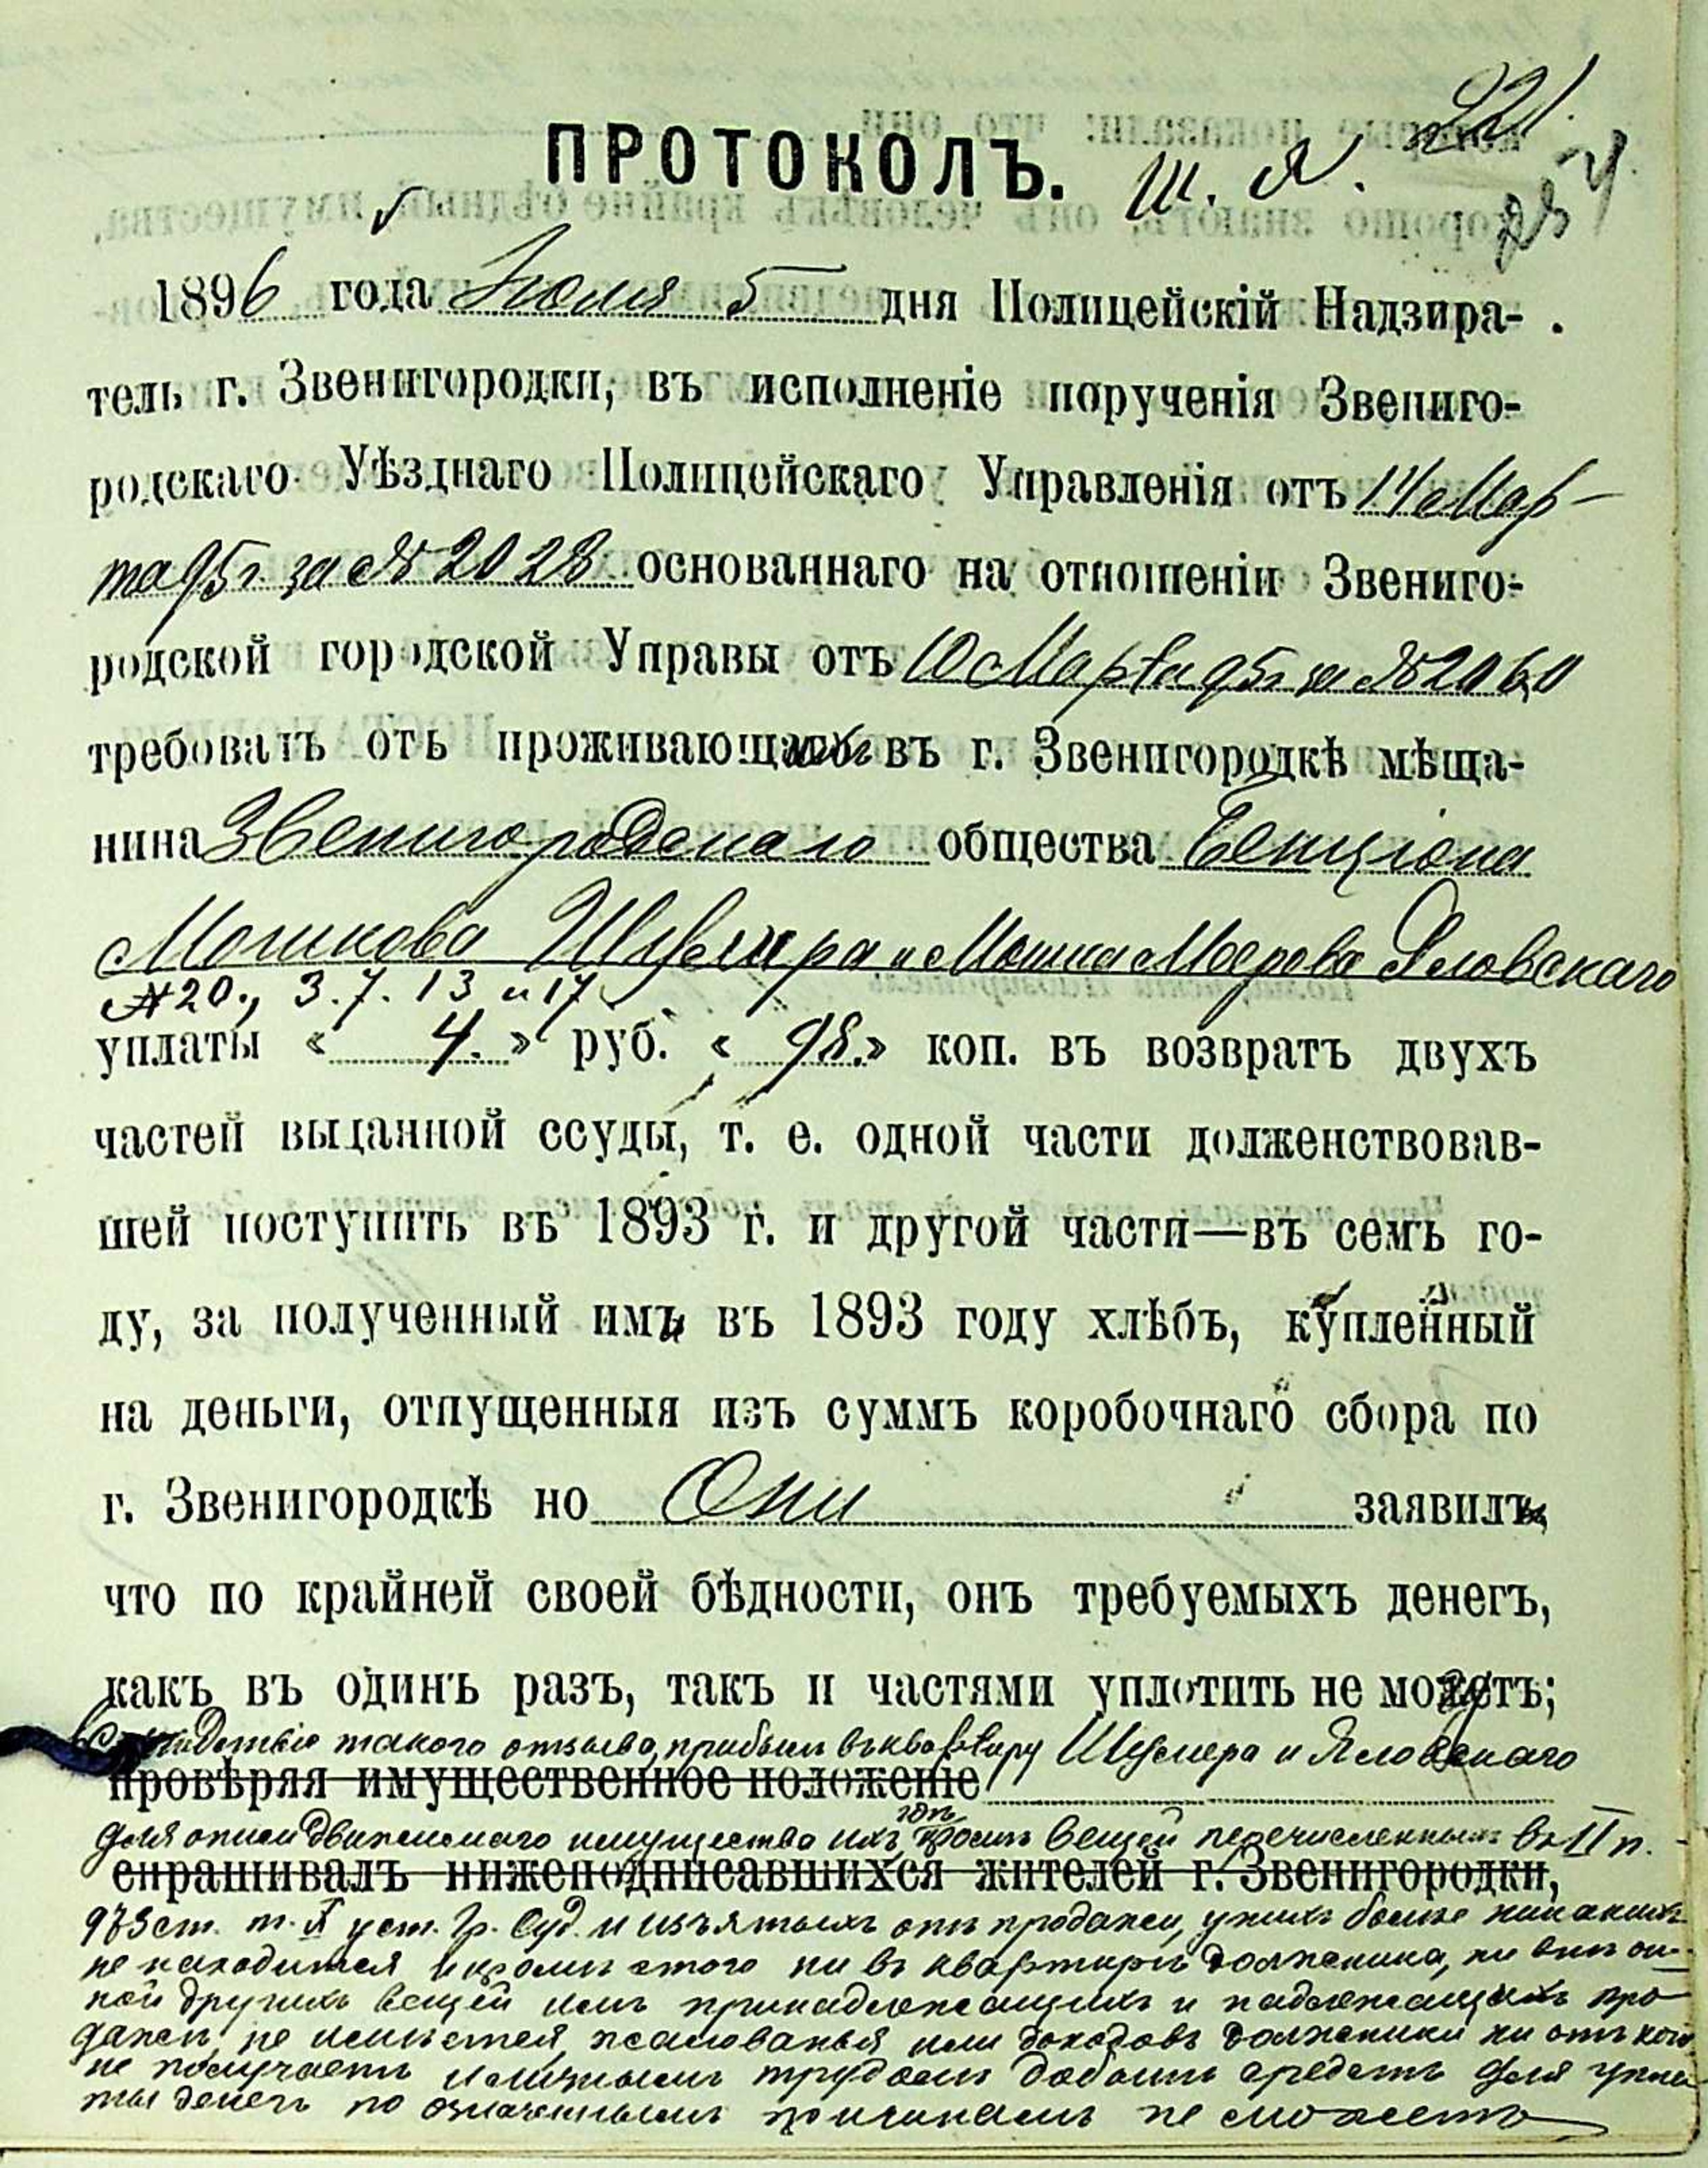 221.
ПРОТОКОЛЪ. Ш. Я.
1896 года Іюля 5 дня Полицейскій Надзира-
тель г. Звенигородки, въ исполненіе порученія Звениго-
родскаго Уѣзднаго Полицейскаго Управленія отъ 14 Мар-
та 95 г. за № 2028 основаннаго на отношеніи Звениго-
родской городской Управы отъ 10 Марта 95 г. за № 2060
требовалъ отъ проживающихъ въ г. Звенигородкѣ мѣща-
нина Звенигородскаго общества Бенціона
Мошкова Шуслера и Мошка Меерова Яловскаго
№ 20., 3. 7. 13 и 17
уплаты « 4. » руб. « 98. » коп. въ возвратъ двухъ
частей выданной ссуды, т. е. одной части долженствовав-
шей поступить въ 1893 г. и другой части—въ семъ го-
ду, за полученный ими въ 1893 году хлѣбъ, купленный
на деньги, отпущенныя изъ суммъ коробочнаго сбора по
г. Звенигородкѣ но Они заявили,
что по крайней своей бѣдности, онъ требуемыхъ денегъ,
какъ въ одинъ разъ, такъ и частями уплотить не могутъ;
такого отзыва, прибылъ въ квартиру Шуслера и Яловскаго
провѣряя имущественное положеніе
для описи движимаго имущества ихъ, гдѣ кромѣ вещей перечисленныхъ въ II п.
спрашивалъ нижеподписавшихся жителей г. Звенигородки,
973 ст. т. X уст. Гр. Суд. и изъятыхъ отъ продажи, у нихъ болѣе никакихъ
не находится и кромѣ этого ни въ квартирѣ должника, ни внѣ он-
ной другихъ вещей имъ принадлежащихъ и надлежащихъ про-
дажѣ, не имѣется, жалованья или доходовъ должники ни отъ кого
не получаетъ и личнымъ трудомъ добыть средствъ для упла-
ты денегъ по означеннымъ причинамъ не можетъ